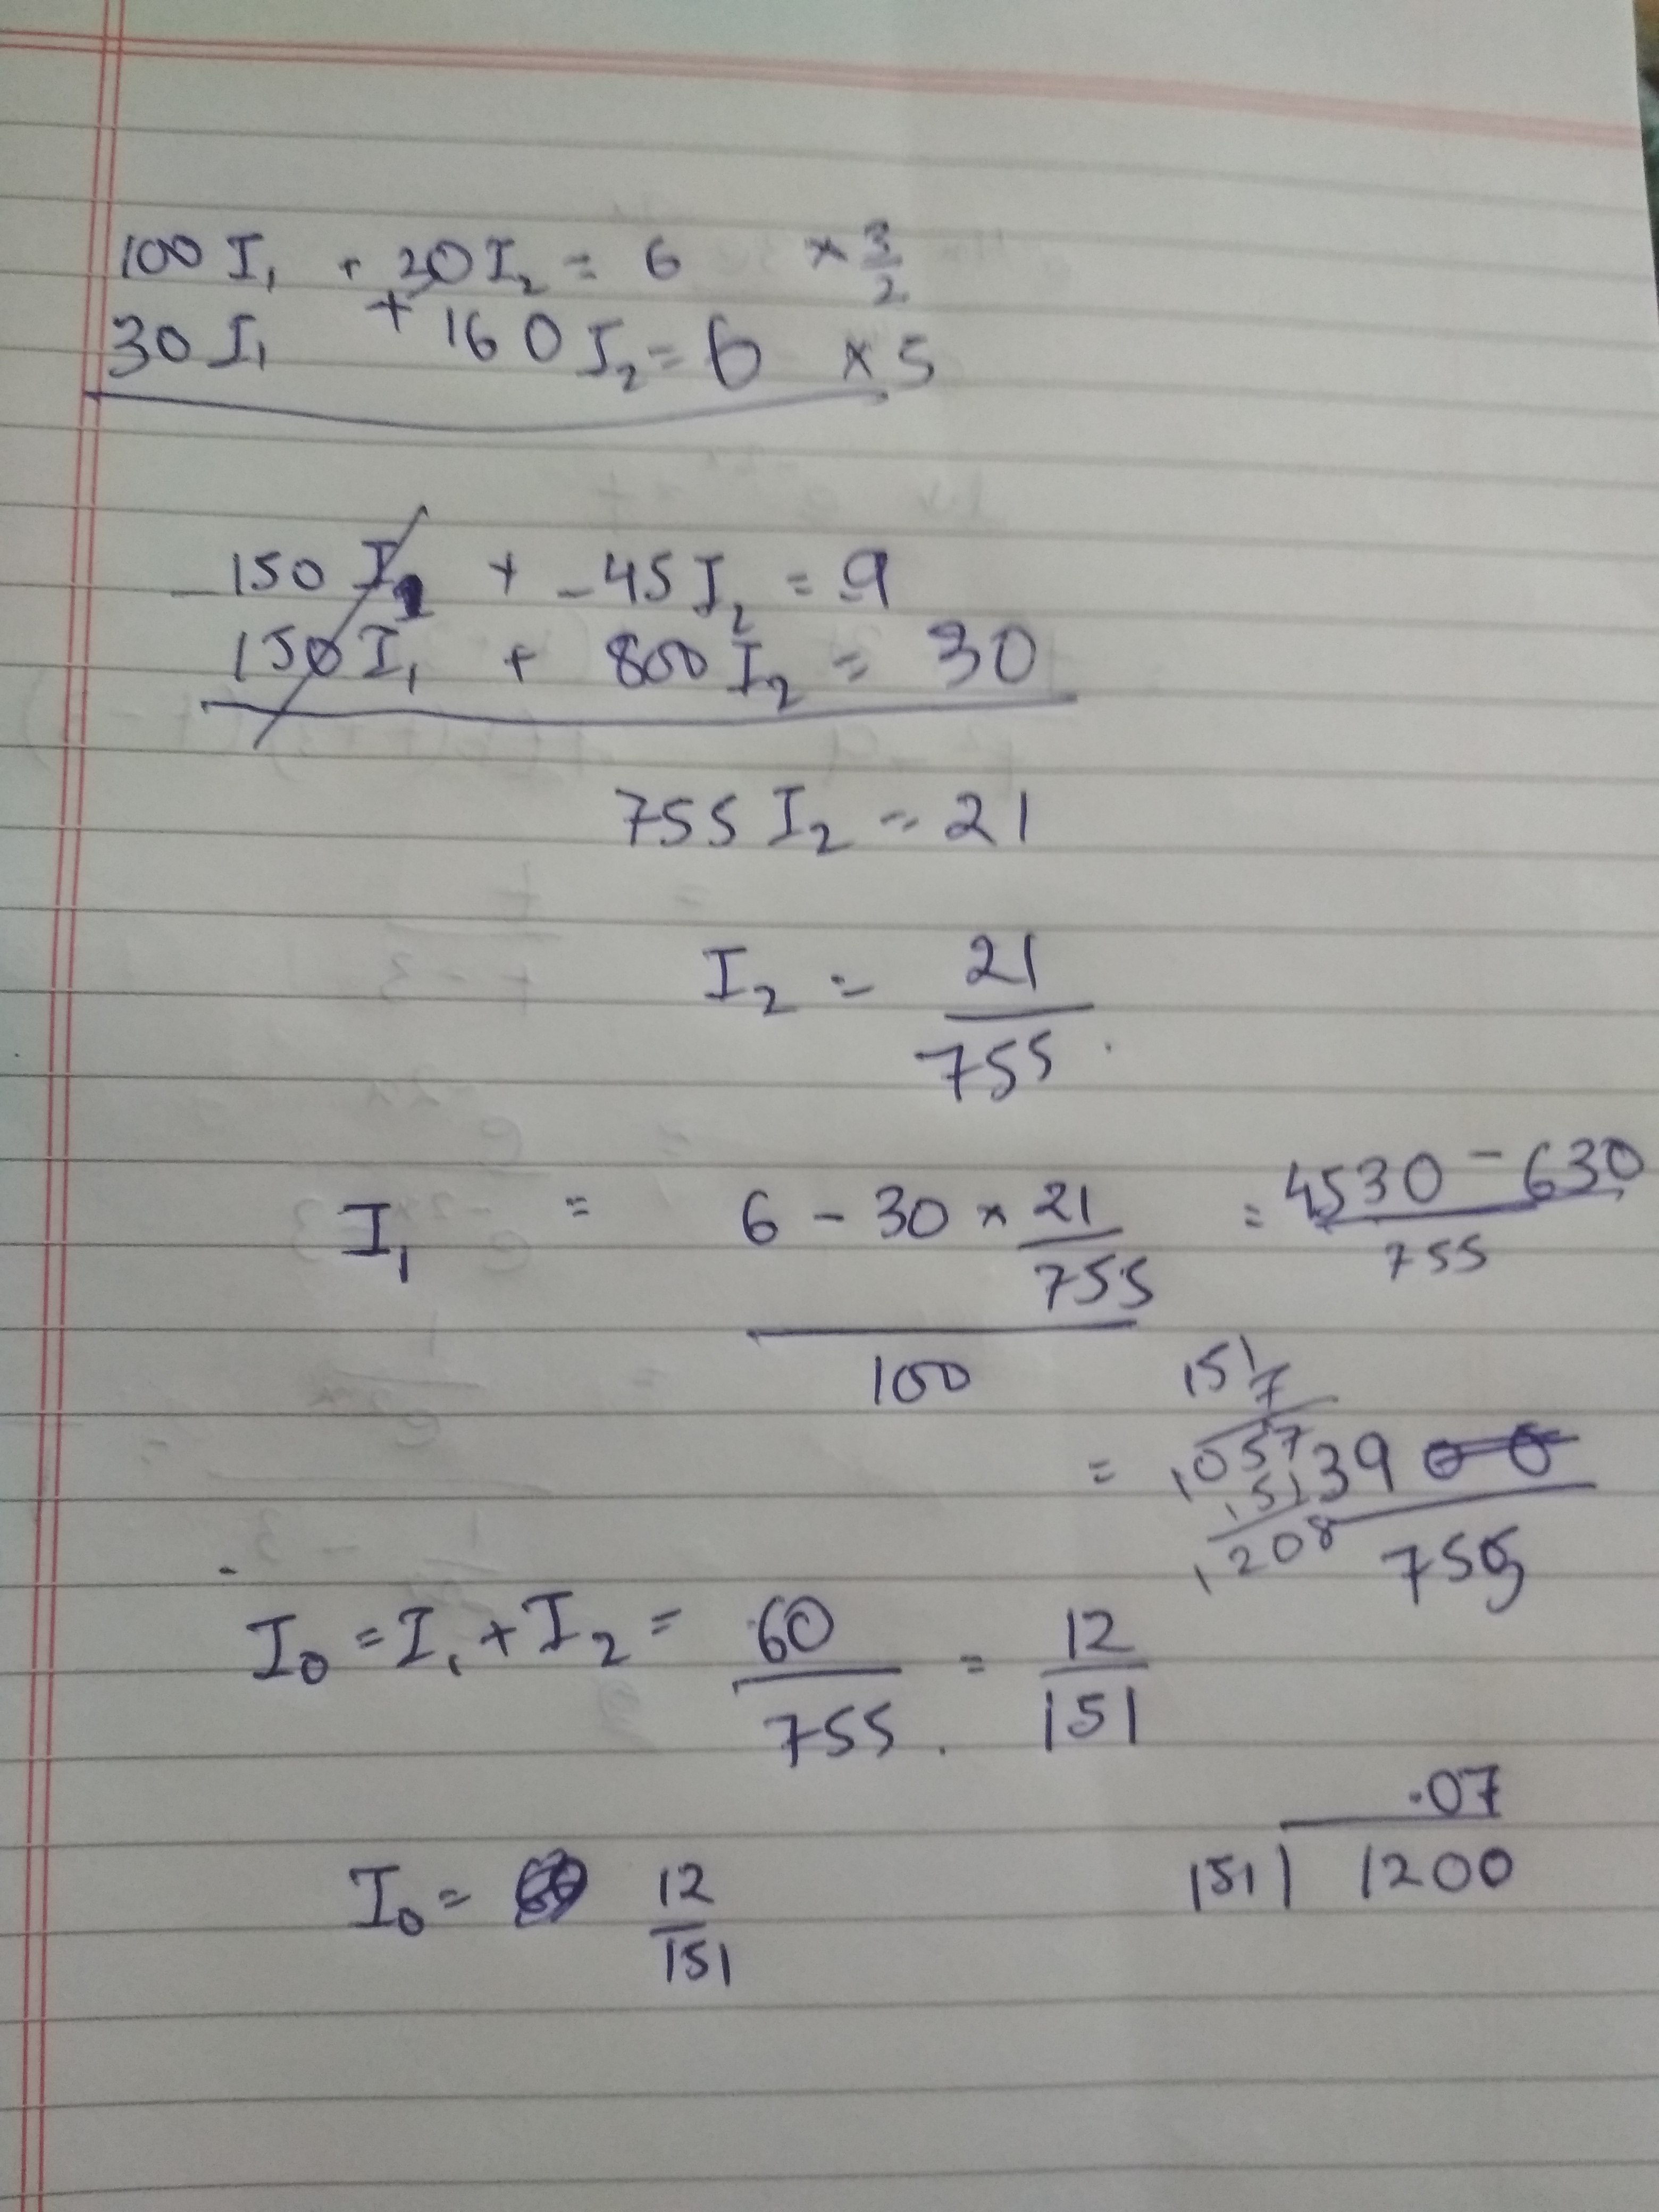 100 I₁ + 20 I₂ = 6 × 3/2
30 I₁ + 160 I₂ = 6 × 5
-150 I₁ + -45 I₂ = 9
150 I₁ + 800 I₂ = 30
755 I₂ = 21
I₂ = 21/755
I₁ = (6 - 30 × 21/755)/100 = (4530 - 630)/755
151
7
1057
151
1208
= 3900/755
I₀ = I₁ + I₂ = 60/755 = 12/151
.07
151) 1200
I₀ = 12/151